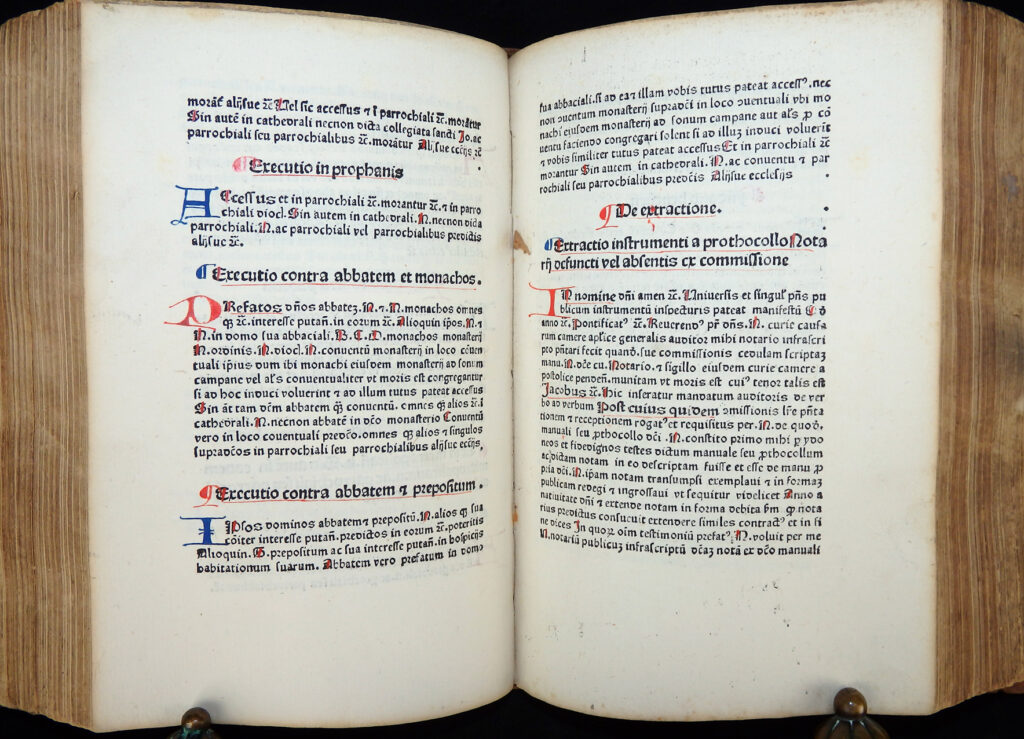 morať alijsue ⁊c̃ Uel sic accessus ⁊ ĩ parrochiali ⁊c̃. morãtur
Sin autẽ in cathedrali necnon dicta collegiata sancti Jo. ac
parrochiali seu parrochialibus ⁊c̃. moratur Alijsue eccĩjs ⁊c̃
¶ Executio in prophanis
ACcessus et in parrochiali ⁊c̃. morantur ⁊c̃. ⁊ in parro
chiali diocĩ. Sin autem in cathedrali. N. necnon dicta
parrochiali. N. ac parrochiali vel parrochialibus predictis
alijsue ⁊c̃.
¶ Executio contra abbatem et monachos.
PRefatos dños abbatez. N. ⁊ N. monachos omnes
q̃ ⁊c̃. interesse putañ. in eorum ⁊c̃. Alioquin ipos. N. ⁊
N. in domo sua abbaciali. B. C. D. monachos monasterij
N. ordinis. N. diocĩ. N. conuentũ monasterij in loco cõuen
tuali ipius dum ibi monachi eiusdem monasterij ad sonum
campane vel als̃ conuentualiter vt moris est congregantur
si ad hoc induci voluerint ⁊ ad illum tutus pateat accessus
Sin ãt tam dc̃m abbatem q̃ conuentũ. omnes q̃ alios ⁊ ĩ
cathedrali. N. necnon abbatẽ in dc̃o monasterio Conuentũ
vero in loco couentuali predc̃o. omnes q̃ alios ⁊ singulos
supradc̃os in parrochiali seu parrochialibus alijsue eccĩjs,
¶ Executio contra abbatem ⁊ prepositum.
IPsos dominos abbatem ⁊ prepositũ. N. alios q̃ sua
cõiter interesse putañ. predictos in eorum ⁊c̃. poteritis
Alioquin. B. prepositum ac sua interesse putañ. in hospicijs
habitationum suarum. Abbatem vero prefatum in domo
sua abbaciali. si ad ea ⁊ illam vobis tutus pateat access⁹. nec
non ɔuentum monasterij supradc̃i in loco ɔuentuali vbi mo
nachi eiusdem monasterij ad sonum campane aut als̃ p̱ cõ
uentu faciendo congregari solent si ad illuʒ induci voluerĩt
⁊ vobis similiter tutus pateat accessus Et in parrochiali ⁊c̃
morantur Sin autem in cathedrali. N. ac conuentu ⁊ par
rochiali seu parrochialibus predc̃is Alijsue ecclesijs
¶ De extractione.
¶ Extractio instrumenti a prothocollo Nota
rij defuncti vel absentis ex commissione
IN nomine dñi amen ⁊c̃. Uniuersis et singul̃ p̃ñs pu
blicum instrumentũ inspecturis pateat manifestũ
anno ⁊c̃. Pontificat⁹ ⁊c̃. Reuerend⁹ pr̃ dñs. N. curie causa
rum camere aplĩce generalis auditor mihi notario infrascri
pto p̃ñtari fecit quand̃. sue commissionis cedulam scriptaʒ
manu. N. dc̃e cu. Notario. ⁊ sigillo eiusdem curie camere a
postolice pendeñ. munitam vt moris est cui⁹ tenor talis est
Jacobus ⁊c̃. Hic inseratur mandatum auditoris de ver
bo ad verbum Post cuius quidem ɔmissionis lr̃e p̃ñta
tionem ⁊ receptionem rogat⁹ et requisitus per. N. de quoõ.
manuali seu prothocollo dc̃i. N. constito primo mihi p̱ ydo
neos et fidedignos testes dictum manuale seu prothocollum
ac dictam notam in eo descriptam fuisse et esse de manu p̱
pria dc̃i. N. ip̃am notam transumpsi exemplaui ⁊ in formaʒ
publicam redegi ⁊ ingrossaui vt sequitur videlicet Anno a
natiuitate dñi ⁊ extende notam in forma debita s̃m q̃ nota
rius predictus consueuit extendere similes contract⁹ et in fi
ne dices In quoʒ oĩm testimoniũ prefat⁹. N. voluit per me
N. notariũ publicuʒ infrascriptũ dc̃aʒ notã ex dc̃o manuali